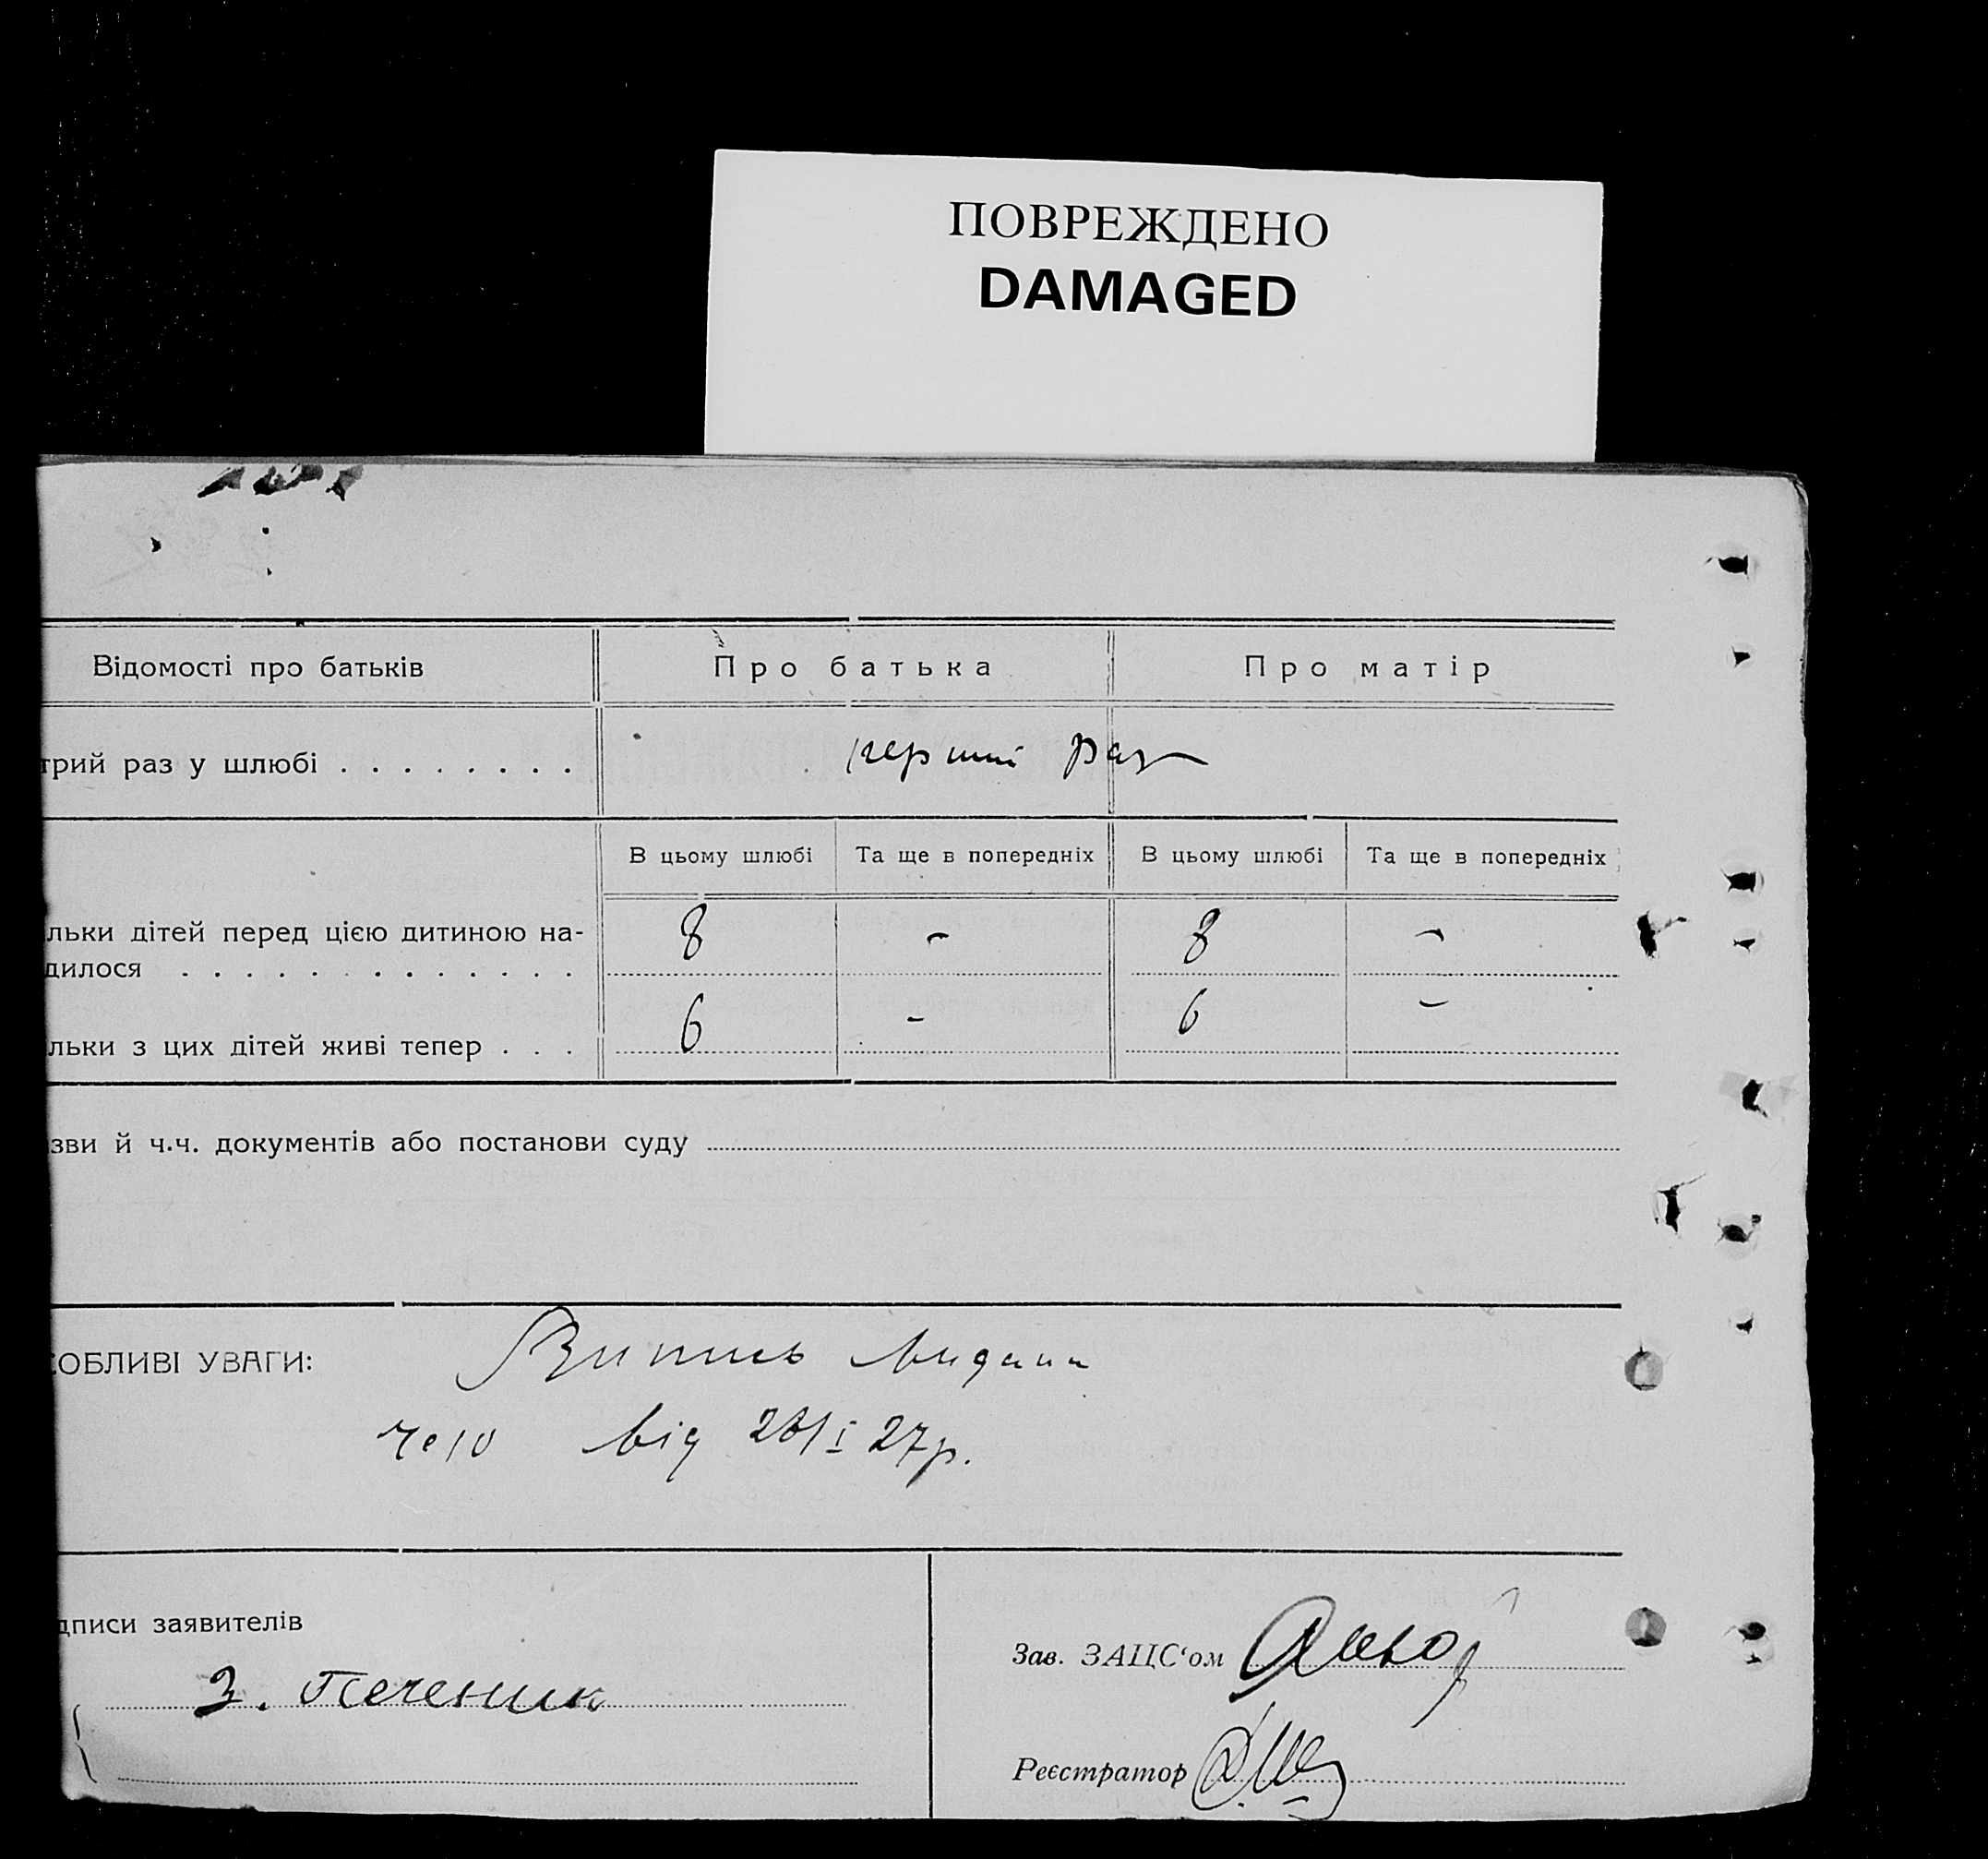 ПОВРЕЖДЕНО
DAMAGED
Відомості про батьків
Про батька
Про матір
трий раз у шлюбі . . . . . . . .
перший раз
В цьому шлюбі
Та ще в попередніх
В цьому шлюбі
Та ще в попередніх
льки дітей перед цією дитиною на-
дилося . . . . . . . . . . . . .
8 - 8 -
льки з цих дітей живі тепер . . .
6 - 6 -
зви й ч.ч. документів або постанови суду
ОБЛИВІ УВАГИ:
Випись видана
від 28/I 27р.
дписи заявителів
З. Печеник
Зав. ЗАЦС‘ом
Реєстратор